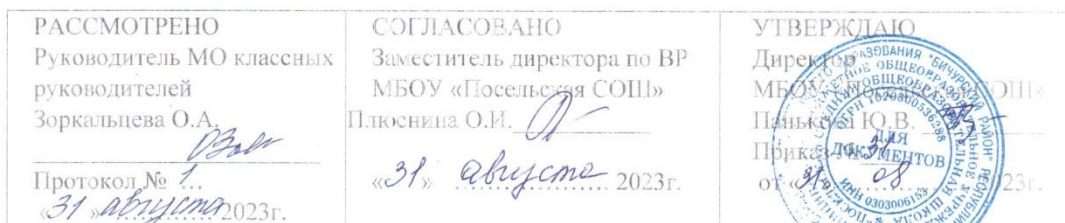 РАССМОТРЕНО
Руководитель МО классных
руководителей
Зоркальцева О.А.
Протокол № 1
«31» августа 2023г.
СОГЛАСОВАНО
Заместитель директора по ВР
МБОУ «Посельская СОШ»
Плюснина О.И.
«31» августа 2023г.
УТВЕРЖДАЮ
Директор
МБОУ «Посельская СОШ»
Ю.В.
Приказ № 31
от «31» 08 2023г.
ДЛЯ
ДОКУМЕНТОВ
ОГРН 1020300536288
ИНН 0303006153
"БИЧУРСКИЙ РАЙОН"